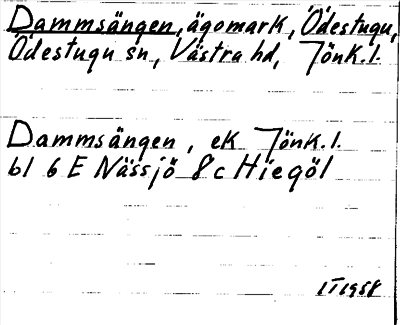 Dammsängen, ägomark, Ödestugu,
Ödestugu sn, Västra hd, Jönk.l.
Dammsängen, ek Jönk.l.
bl 6 E Nässjö 8 c Hiegöl
1958